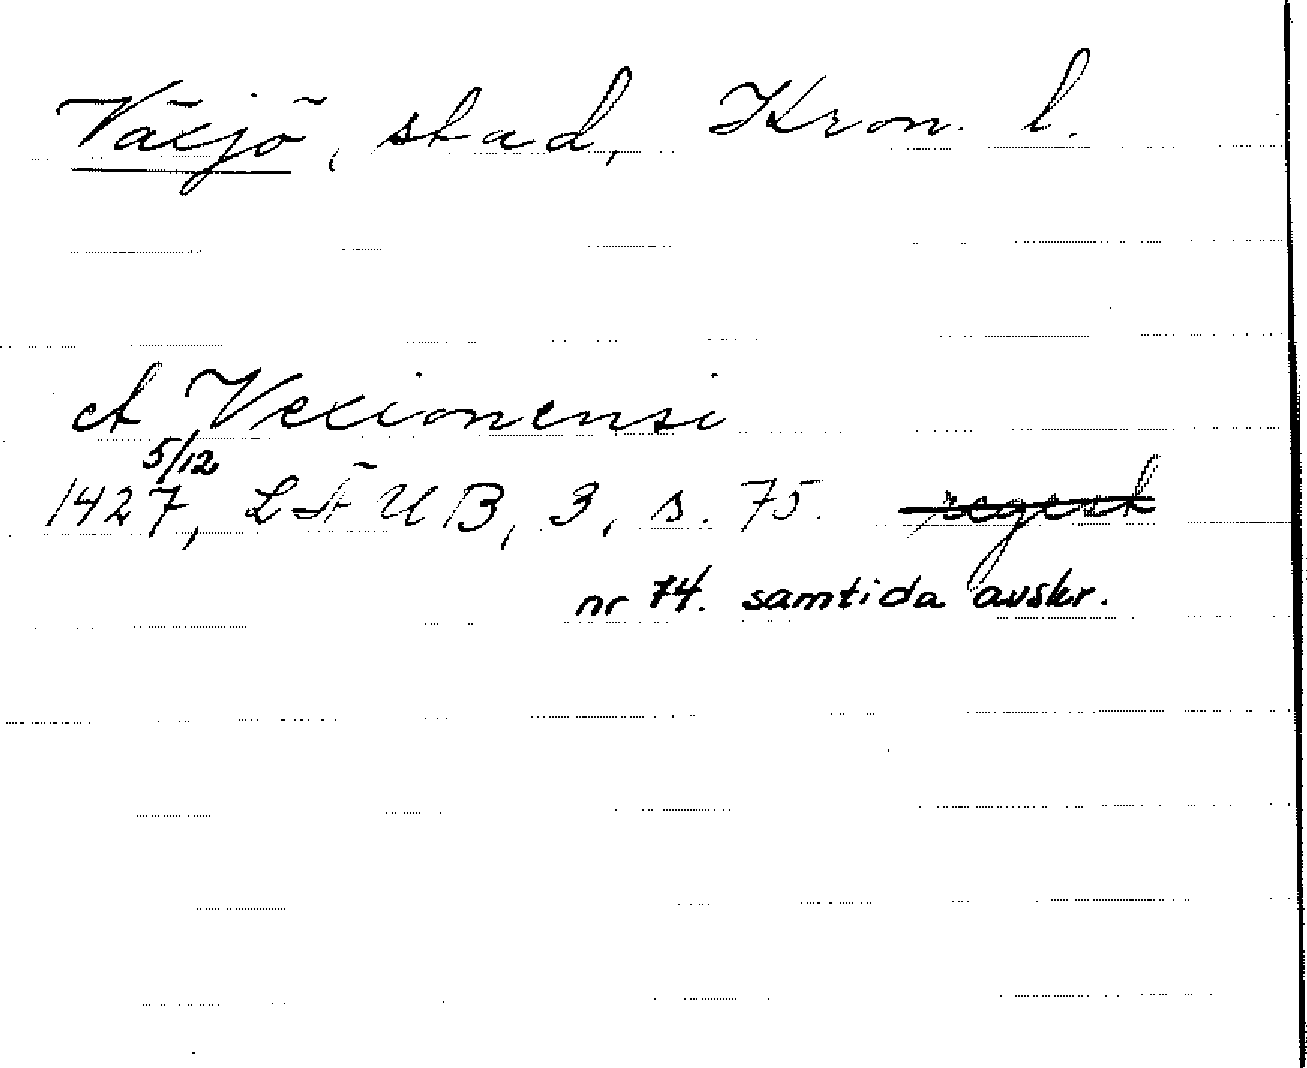 Växjö, stad, Kron. l.
et Vexionensi
5/12
1427, LÄUB, 3, s. 75. regest
nr 74. samtida avskr.